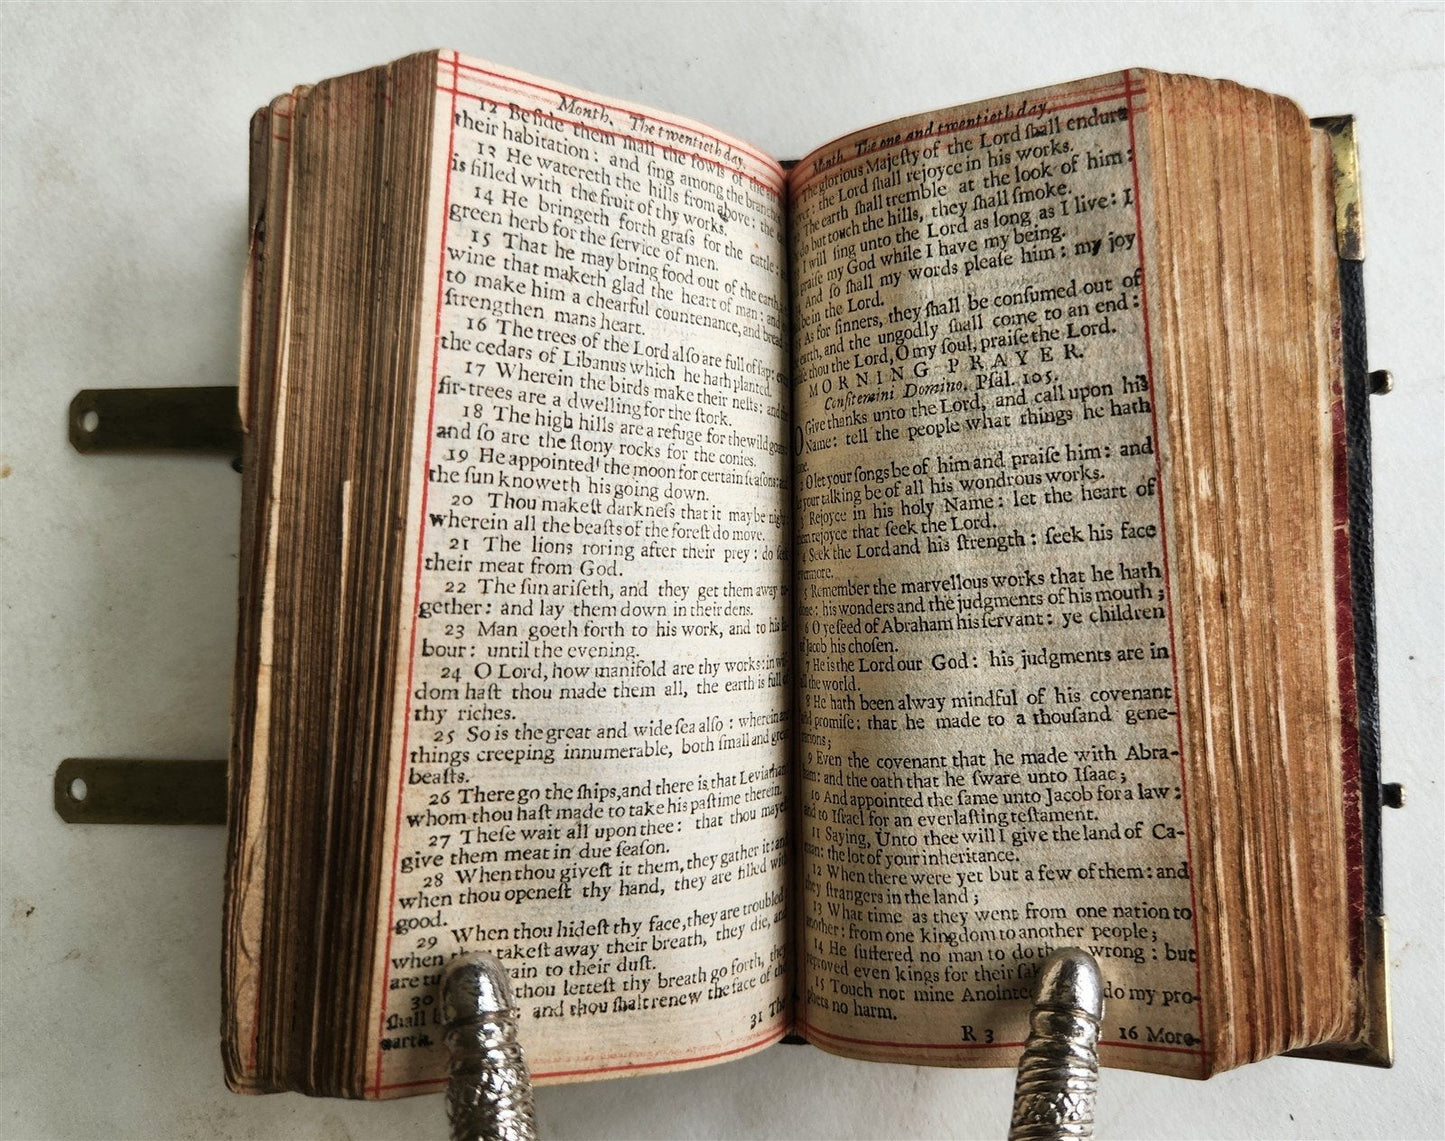 Month. The twentieth day.
12 Beſide them ſhall the fowls of the
their habitation: and ſing among the branches
13 He watereth the hills from above: the
is filled with the fruit of thy works.
14 He bringeth forth graſs for the cattle:
green herb for the ſervice of men.
15 That he may bring food out of the earth,
wine that maketh glad the heart of man: and
to make him a chearful countenance, and bread
ſtrengthen mans heart.
16 The trees of the Lord alſo are full of ſap: even
the cedars of Libanus which he hath planted.
17 Wherein the birds make their neſts: and
fir-trees are a dwelling for the ſtork.
18 The high hills are a refuge for the wild goats:
and ſo are the ſtony rocks for the conies.
19 He appointed the moon for certain ſeaſons: and
the ſun knoweth his going down.
20 Thou makeſt darkneſs that it may be night:
wherein all the beaſts of the foreſt do move.
21 The lions roring after their prey: do ſeek
their meat from God.
22 The ſun ariſeth, and they get them away to-
gether: and lay them down in their dens.
23 Man goeth forth to his work, and to his la-
bour: until the evening.
24 O Lord, how manifold are thy works: in wiſ-
dom haſt thou made them all, the earth is full of
thy riches.
25 So is the great and wide ſea alſo: wherein are
things creeping innumerable, both ſmall and great
beaſts.
26 There go the ſhips, and there is that Leviathan:
whom thou haſt made to take his paſtime therein.
27 Theſe wait all upon thee: that thou mayeſt
give them meat in due ſeaſon.
28 When thou giveſt it them, they gather it: and
when thou openeſt thy hand, they are filled with
good.
29 When thou hideſt thy face, they are troubled:
when takeſt away their breath, they die, and
are to their duſt.
30 thou letteſt thy breath go forth, they
ſhall : and thou ſhalt renew the face of the
earth.
31 The
Month. The one and twentieth day.
The glorious Majeſty of the Lord ſhall endure
the Lord ſhall rejoyce in his works.
The earth ſhall tremble at the look of him:
do but touch the hills, they ſhall ſmoke.
I will ſing unto the Lord as long as I live: I
praiſe my God while I have my being.
And ſo ſhall my words pleaſe him: my joy
be in the Lord.
As for ſinners, they ſhall be conſumed out of
earth, and the ungodly ſhall come to an end:
thou the Lord, O my ſoul, praiſe the Lord.
MORNING PRAYER.
Confitemini Domino. Pſal. 105.
O Give thanks unto the Lord, and call upon his
Name: tell the people what things he hath
2 O let your ſongs be of him and praiſe him: and
your talking be of all his wondrous works.
3 Rejoyce in his holy Name: let the heart of
them rejoyce that ſeek the Lord.
4 Seek the Lord and his ſtrength: ſeek his face
evermore.
5 Remember the marvellous works that he hath
done: his wonders and the judgments of his mouth;
6 O ye ſeed of Abraham his ſervant: ye children
of Jacob his choſen.
7 He is the Lord our God: his judgments are in
all the world.
8 He hath been alway mindful of his covenant
and promiſe: that he made to a thouſand gene-
rations;
9 Even the covenant that he made with Abra-
ham: and the oath that he ſware unto Iſaac;
10 And appointed the ſame unto Jacob for a law:
and to Iſrael for an everlaſting teſtament.
11 Saying, Unto thee will I give the land of Ca-
naan: the lot of your inheritance.
12 When there were yet but a few of them: and
they ſtrangers in the land;
13 What time as they went from one nation to
another: from one kingdom to another people;
14 He ſuffered no man to do wrong: but
reproved even kings for their
15 Touch not mine do my pro-
phets no harm.
R 3
16 More-